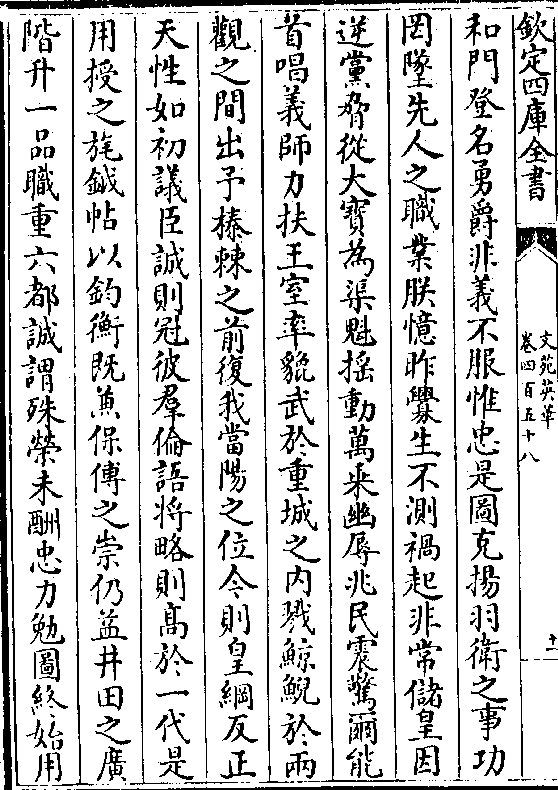 欽定四庫全書
文苑英華
卷四百五十八
十一
和門登名勇爵非義不服惟忠是圖克揚羽衛之事功
罔墜先人之職業朕憶昨釁生不測禍起非常儲皇因
逆黨脅從大寳為渠魁揺動萬乘幽辱兆民震驚爾能
首唱義師力扶王室率貔武於重城之内戮鯨鯢於兩
觀之間出予榛棘之前復我當陽之位今則皇綱反正
天性如初議臣誠則冠彼羣倫語将略則髙於一代是
用授之旄鉞帖以鈞衡既兼保傅之崇仍益井田之廣
階升一品職重六都誠謂殊榮未酬忠力勉圖終始用